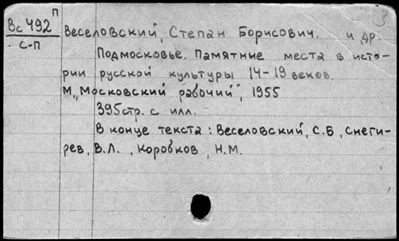 П
3
Вс 492
С-П
Веселовский, Степан Борисович. и др.
Подмосковье. Памятные места в исто-
рии русской культуры 14-19 веков.
М, „Московский рабочий", 1955
395стр. с илл.
В конце текста: Веселовский, С.Б, Снеги-
рев, В.Л., Коробков, Н.М.